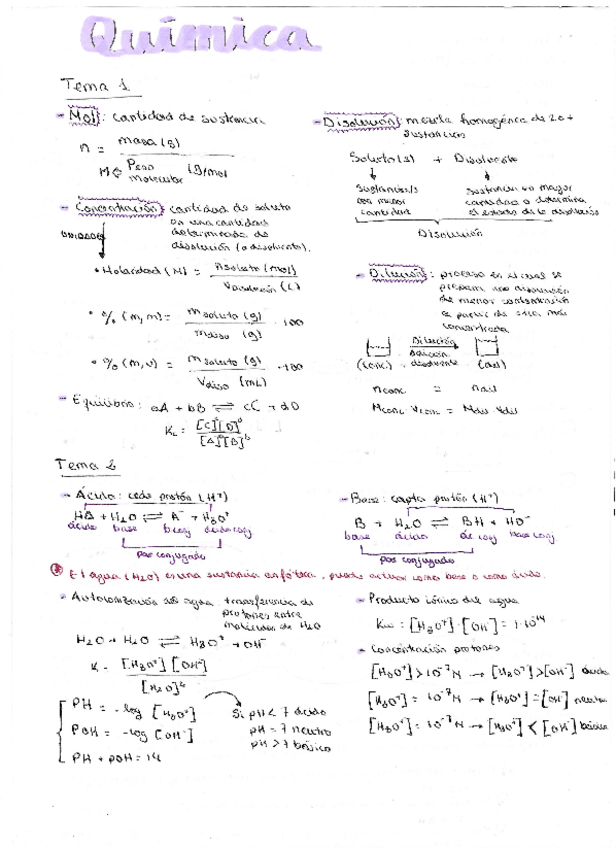 Química
Tema 1
- Mol: cantidad de sustancia
n = masa (g)
M Peso Molecular (g/mol)
- Concentración: cantidad de soluto
en una cantidad
determinada de
disolución (o disolvente).
• Molaridad (M) = n soluto (mol)
V disolución (L)
• % (m, m) = m soluto (g) · 100
m diso (g)
• % (m, v) = m soluto (g) · 100
V diso (mL)
- Equilibrio: aA + bB ⇌ cC + dD
Kc = [C]ᶜ[D]ᵈ
[A]ᵃ[B]ᵇ
- Disolución: mezcla homogénea de 2 o +
sustancias
Soluto (s) + Disolvente
Sustancia/s
con menor
cantidad
Sustancia en mayor
cantidad o determina
el estado de la disolución
Disolución
- Dilución: proceso en el cual se
prepara una disolución
de menor concentración
a partir de otra más
concentrada
Dilución
adición
disolvente
(conc.) (dil)
n conc = n dil
M conc · V conc = M dil · V dil
Tema 2
- Ácido: cede protón (H⁺)
HA + H2O ⇌ A⁻ + H3O⁺
ácido base b conj ácido conj
par conjugado
- Base: capta protón (H⁺)
B + H2O ⇌ BH + HO⁻
base ácido ác conj base conj
par conjugado
El agua (H2O) es una sustancia anfótera, puede actuar como base o como ácido.
- Autoionización del agua: transferencia de
protones entre
moléculas de H2O
H2O + H2O ⇌ H3O⁺ + OH⁻
K = [H3O⁺][OH⁻]
[H2O]²
PH = -log [H3O⁺]
POH = -log [OH⁻]
PH + POH = 14
Si pH < 7 ácido
pH = 7 neutro
pH > 7 básico
- Producto iónico del agua
Kw = [H3O⁺]·[OH⁻] = 1·10⁻¹⁴
- Concentración protones
[H3O⁺] > 10⁻⁷ M → [H3O⁺] > [OH⁻] ácida
[H3O⁺] = 10⁻⁷ M → [H3O⁺] = [OH⁻] neutra
[H3O⁺] = 10⁻⁷ M → [H3O⁺] < [OH⁻] básica